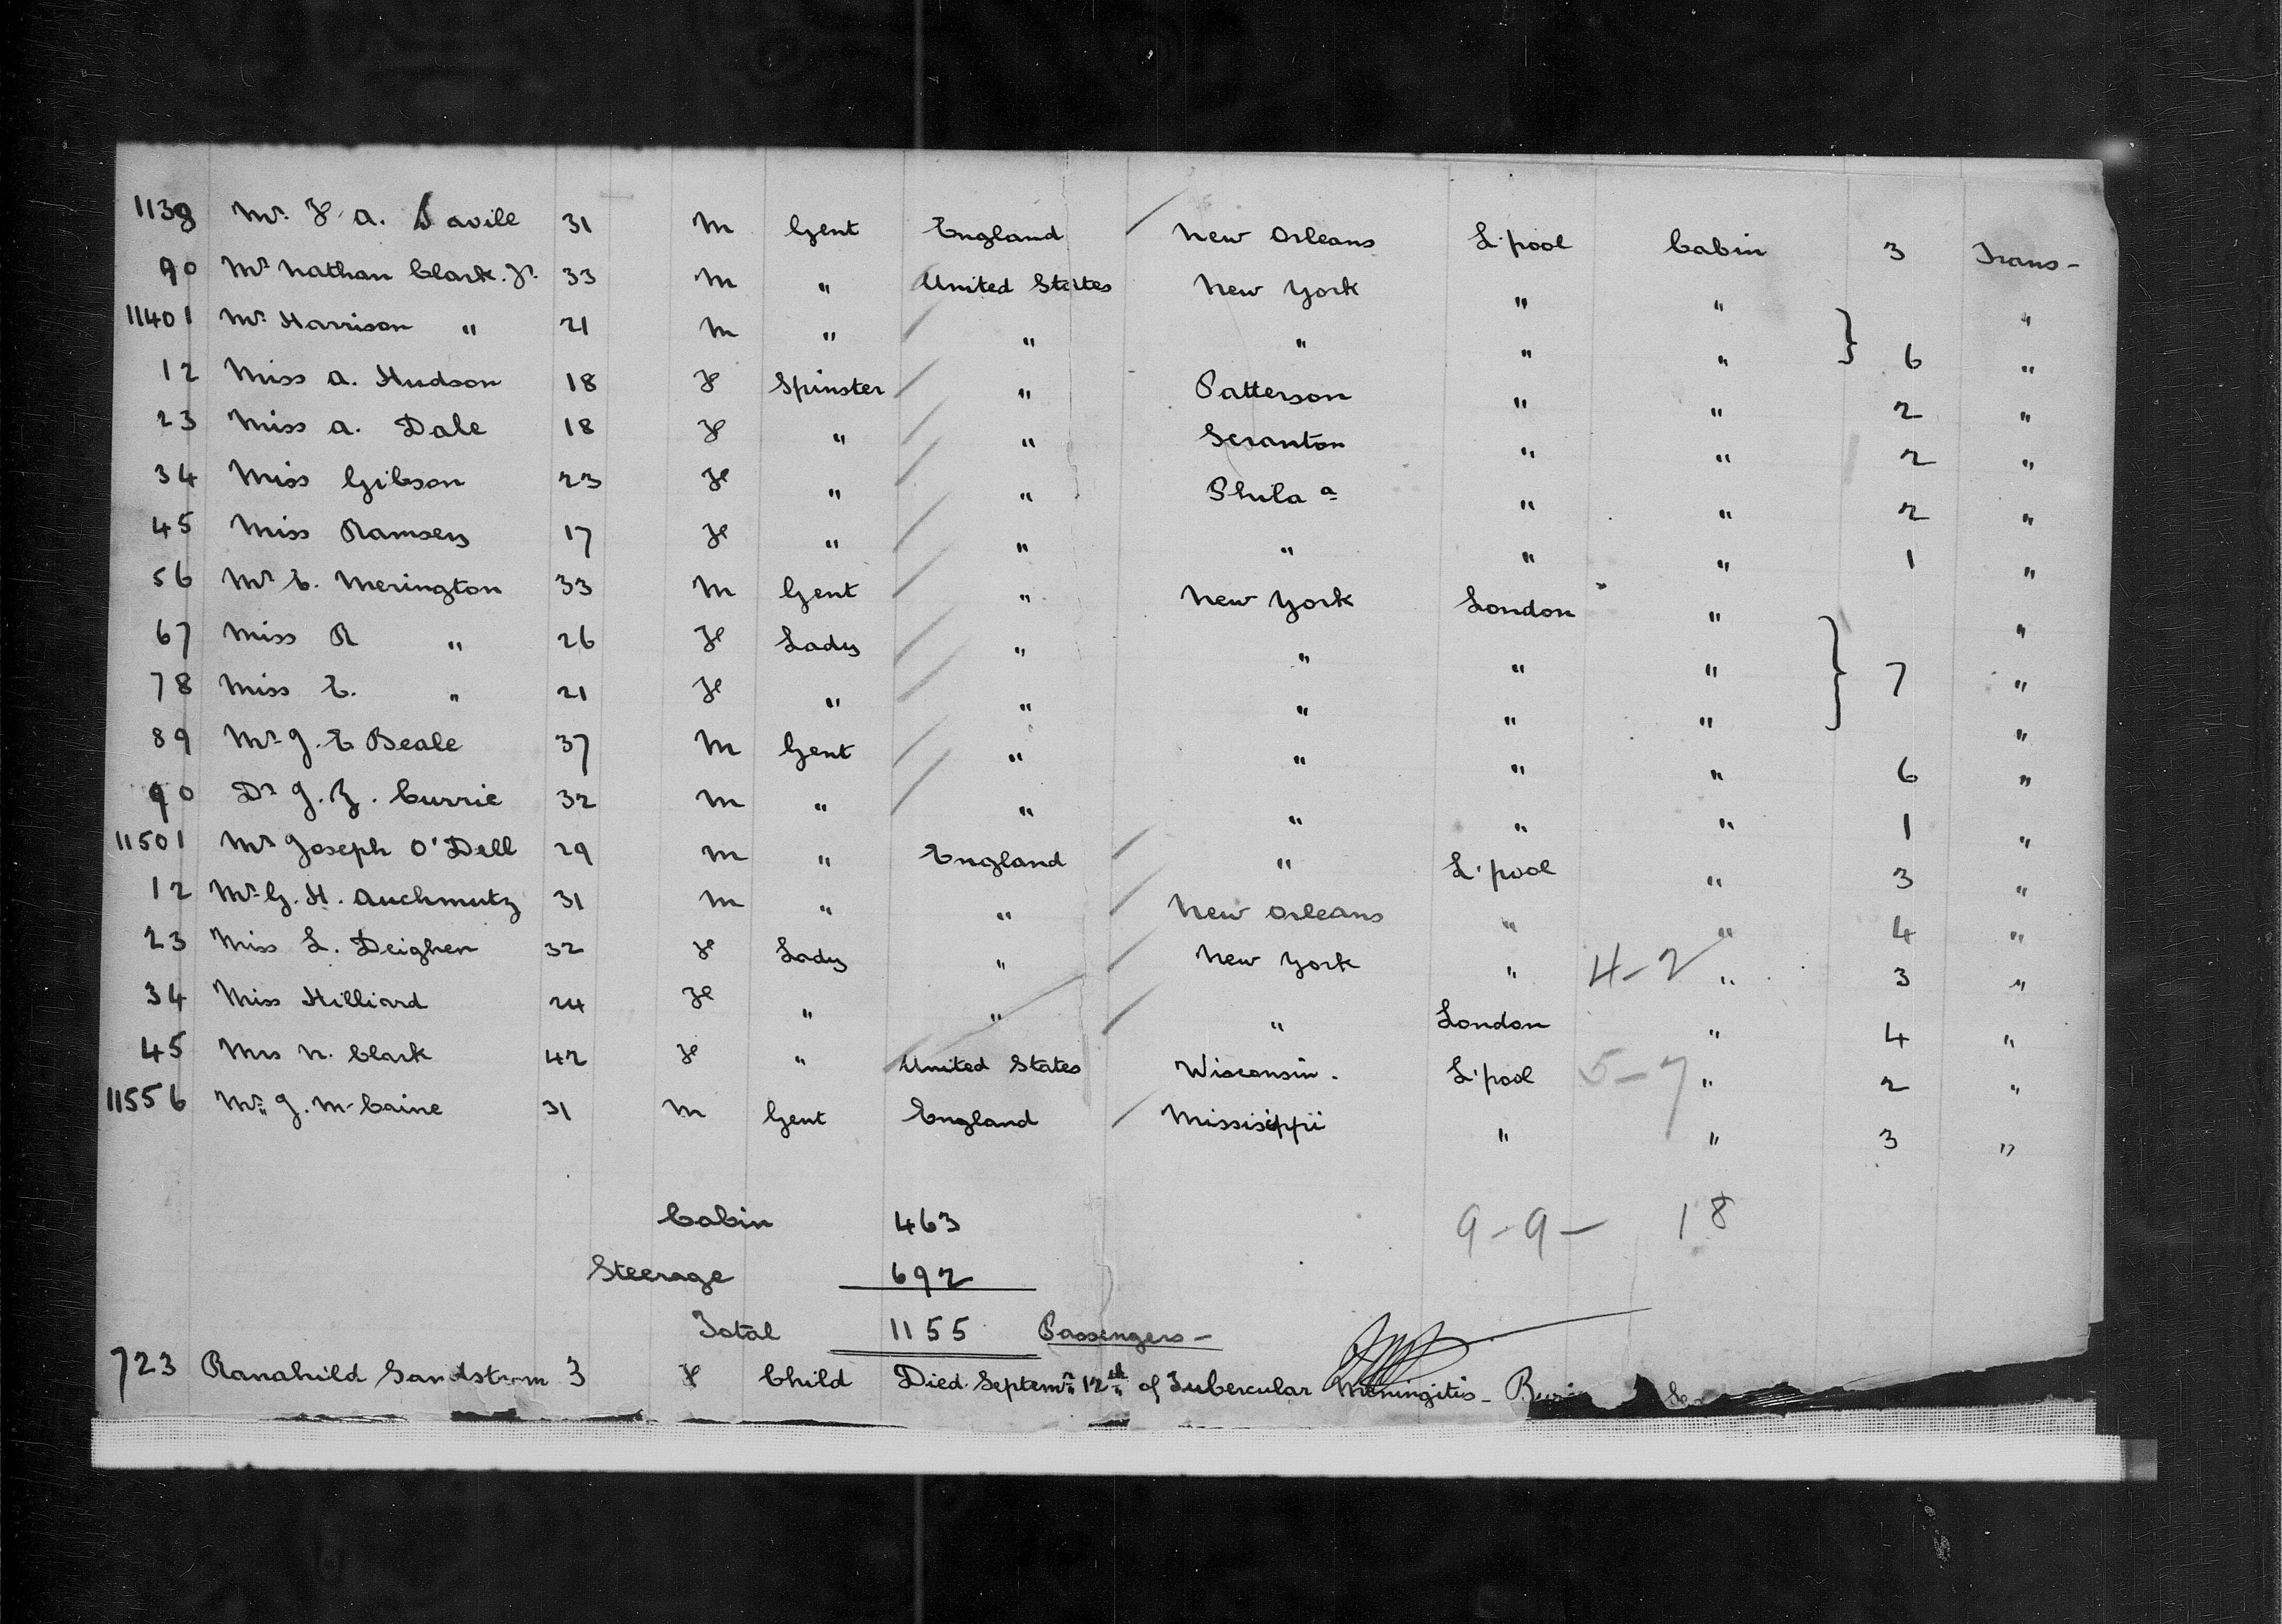 1139 Mr. F. A. Davile 31 M Gent England New Orleans L'pool Cabin 3 Trans-
90 Mr Nathan Clark. Jr. 33 M " United States New York " " "
11401 Mr. Harrison " 21 M " " " " " 6 "
12 Miss A. Hudson 18 F Spinster " Patterson " " 2 "
23 Miss A. Dale 18 F " " Scranton " " 2 "
34 Miss Gibson 23 F " " Phila a " " 2 "
45 Miss Ramsey 17 F " " " " " 1 "
56 Mr C. Merington 33 M Gent " New York London " "
67 Miss R " 26 F Lady " " " " 7 "
78 Miss E. " 21 F " " " " " "
89 Mr J. E Beale 37 M Gent " " " " 6 "
90 Dr J. Z. Currie 32 M " " " " " 1 "
11501 Mr Joseph O'Dell 29 M " England " L'pool " 3 "
12 Mr G. H. Auchmuty 31 M " " New Orleans " " 4 "
23 Miss L. Deighen 32 F Lady " New York " 4-2 " 3 "
34 Miss Hilliard 24 F " " " London " 4 "
45 Mrs N. Clark 42 F " United States Wisconsin. L'pool 5-7 " 2 "
11556 Mr J. M. Caine 31 M Gent England Missisippi " " 3 "
Cabin 463 9-9- 18
Steerage 692
Total 1155 Passengers-
723 Ranahild Sandstrom 3 F Child Died Septemr 12th of Tubercular Meningitis-